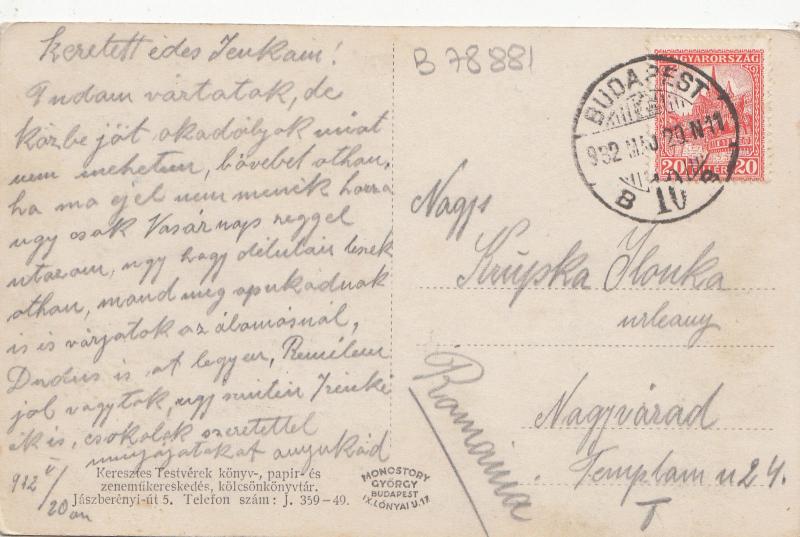 keretett édes Ienkám!
Tudam vártatok, de
közbe jöt akadályok miat
nem mehetem, bövebet othan,
ha ma éjel nem menék haza
ugy csak Vasárnap reggel
utazom, ugy hogy délután leszek
othan, mond meg apukádnak
is várjatok az álamásnál,
Dudus is ot legyen, Remélem
jól vagytok, ugy szintén
ék is, csokolok szeretettel
anyukád
932 V/
20 án
Keresztes Testvérek könyv-, papir- és
zeneműkereskedés, kölcsönkönyvtár.
Jászberényi-út 5. Telefon szám: J. 359-49.
MONOSTORY
GYÖRGY
BUDAPEST
IX. LÓNYAI U. 17
B 78881
MAGYARORSZÁG
20 FILLÉR 20
BUDAPEST
932 MÁJ 20 N 11
B 10 B
Nagys
Krupka Ilonka
urleany
Nagyvárad
Templam u 24.
T
Romainia